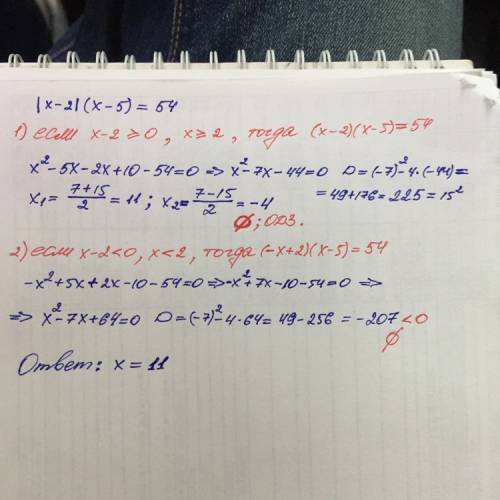 |x-2|(x-5)=54
1) если x-2≥0, x≥2, тогда (x-2)(x-5)=54
x²-5x-2x+10-54=0 ⇒ x²-7x-44=0 D=(-7)²-4·(-44)=
x₁=(7+15)/2=11; x₂=(7-15)/2=-4 =49+176=225=15²
∅; ОДЗ.
2) если x-2<0, x<2, тогда (-x+2)(x-5)=54
-x²+5x+2x-10-54=0 ⇒ -x²+7x-10-54=0 ⇒
⇒ x²-7x+64=0 D=(-7)²-4·64=49-256=-207<0
∅
Ответ: x=11